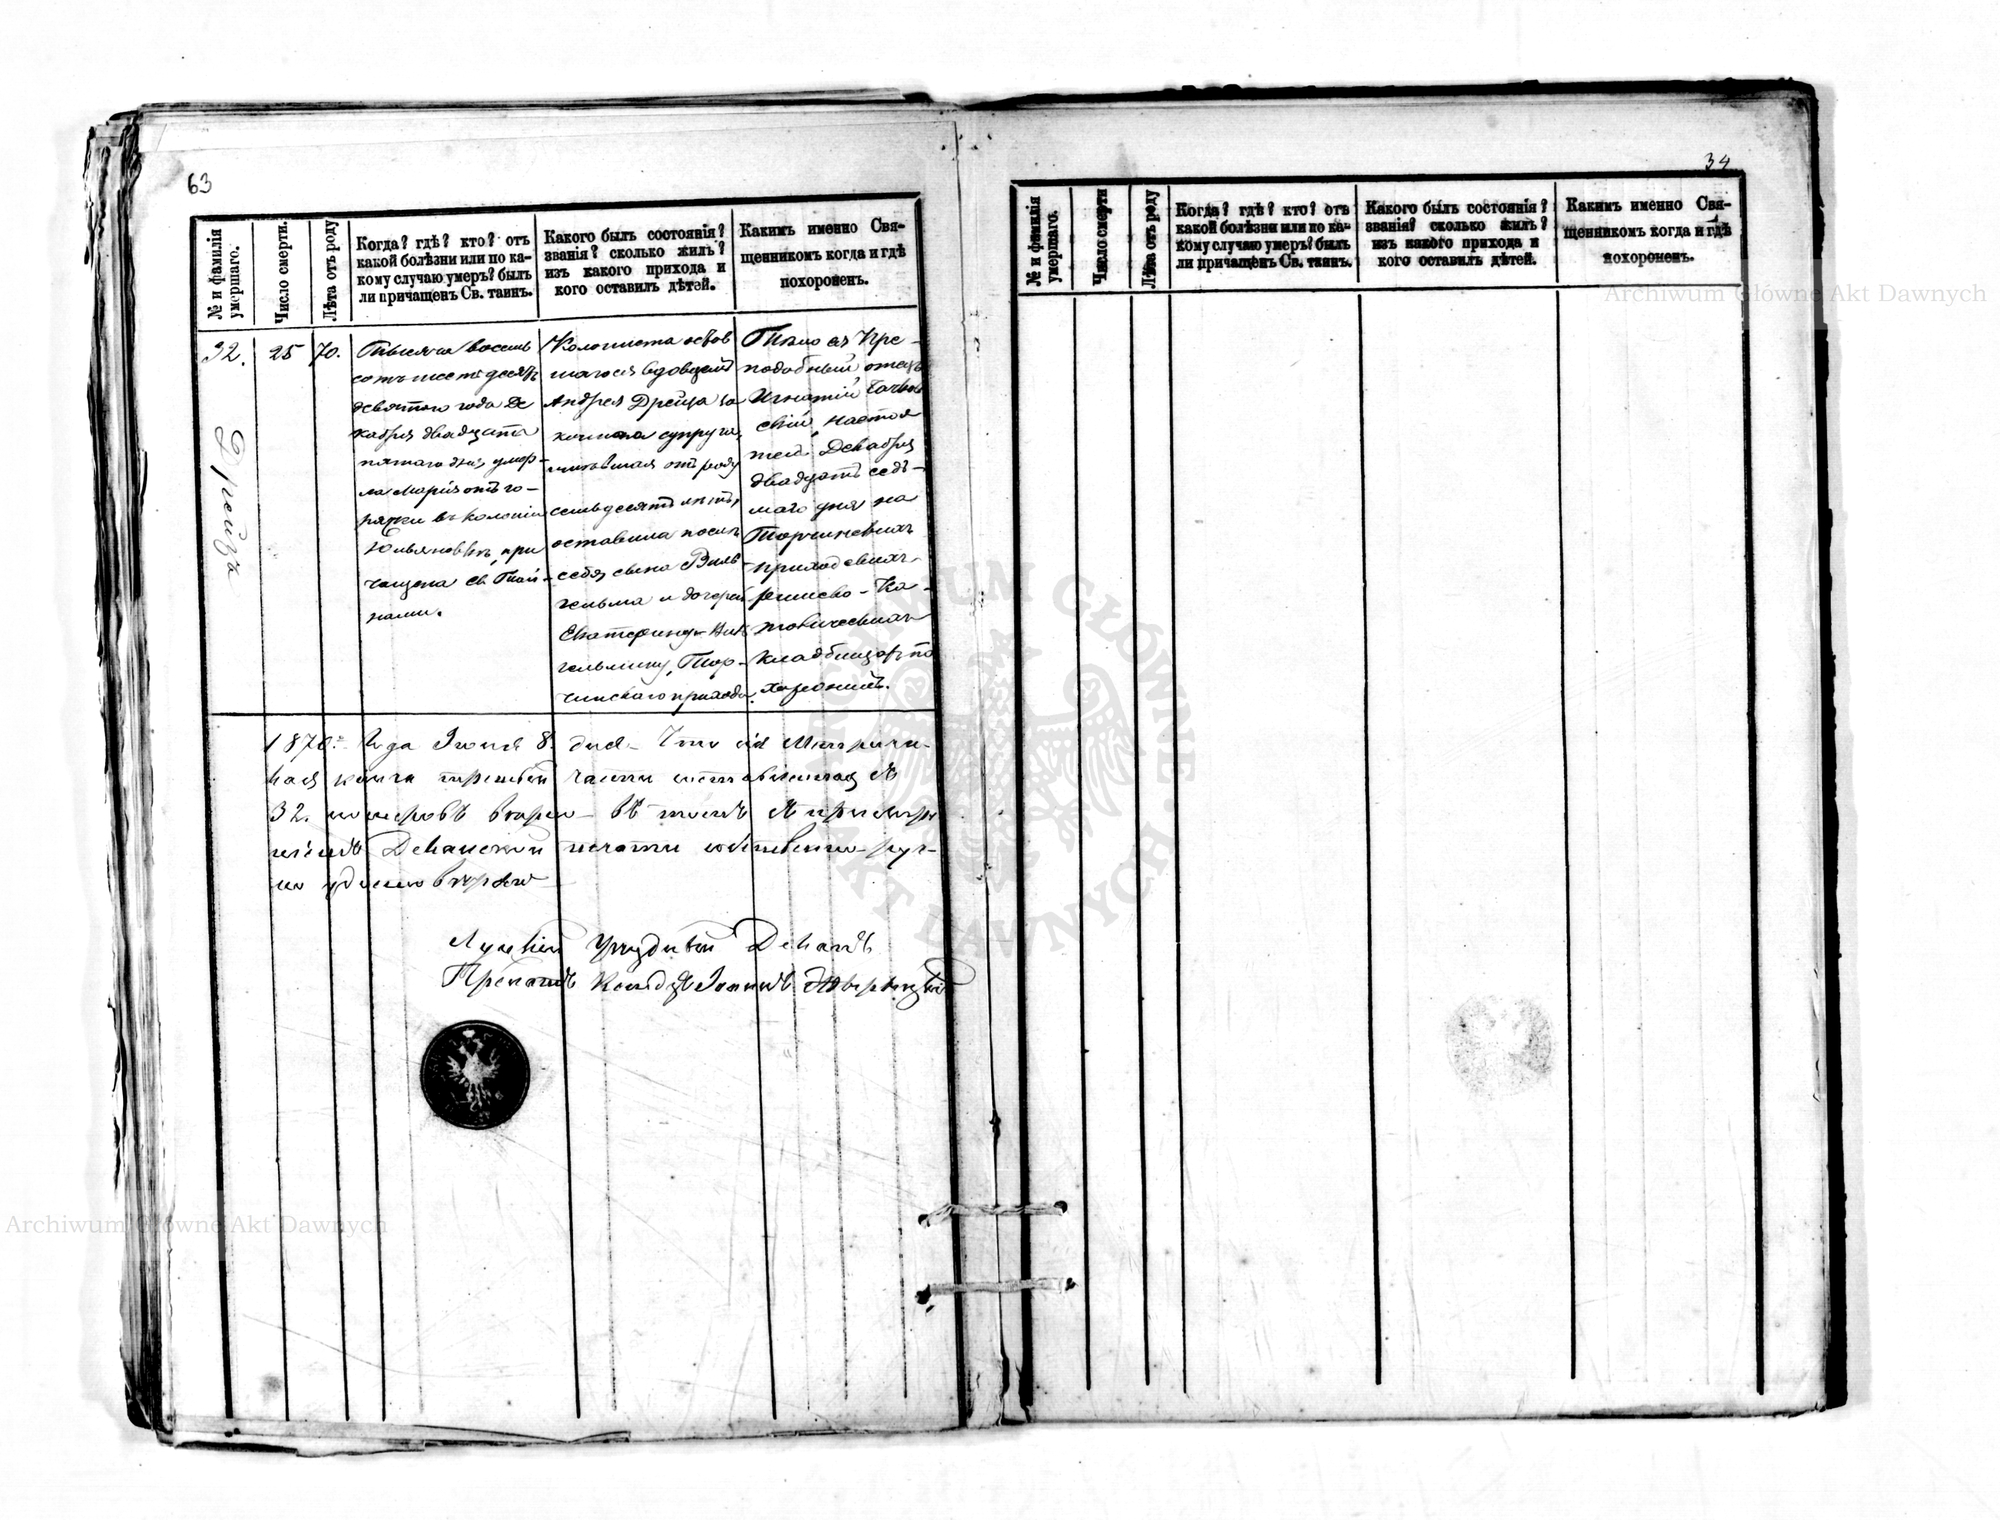 63
№ и фамилія умершаго.
Число смерти.
Лѣта отъ роду
Когда? гдѣ? кто? отъ
какой болѣзни или по ка-
кому случаю умеръ? былъ
ли причащенъ Св. таинъ.
Какого былъ состоянія?
званія? сколько жилъ?
изъ какого прихода и
кого оставилъ дѣтей.
Какимъ именно Свя-
щенникомъ когда и гдѣ
похороненъ.
32.
Дрейцъ
25
70.
Тысяча восемь
сотъ шестьдесятъ
девятого года Де
кабря двадцать
пятаго дня умер-
ла Марія отъ го-
рячки въ колоніи
при
чащена Св. Тай-
нами.
Колониста остав
шагося вдовцемъ
Андрея Дрейца за
конная супруга,
имѣвшая отъ роду
семьдесятъ лѣтъ,
оставила послѣ
себя сына Виль-
гельма и дочерей
Екатерину и Виль
гельмину, Тор-
чинскаго прихода.
Тѣло ея Пре-
подобный отецъ
Игнатій
скій, настоя
тель Декабря
двадцать седь-
маго дня на
Торчинскомъ
приходскомъ
Римско-Ка-
толическомъ
кладбищѣ по
хоронилъ.
1870 года Іюня 8 дня Что сія Метриче-
ская книга третьей части
32. номеровъ въ томъ
Деканской печати собственно-руч-
но удостовѣряю
Луцкій Уѣздный Деканъ
Ксендзъ Іоаннъ
34
№ и фамилія умершаго.
Число смерти
Лѣта отъ роду
Когда? гдѣ? кто? отъ
какой болѣзни или по ка-
кому случаю умеръ? былъ
ли причащенъ Св. таинъ.
Какого былъ состоянія?
званія? сколько жилъ?
изъ какого прихода и
кого оставилъ дѣтей.
Какимъ именно Свя-
щенникомъ когда и гдѣ
похороненъ.
Archiwum Główne Akt Dawnych
Archiwum Główne Akt Dawnych
ARCHIWUM GŁÓWNE AKT DAWNYCH